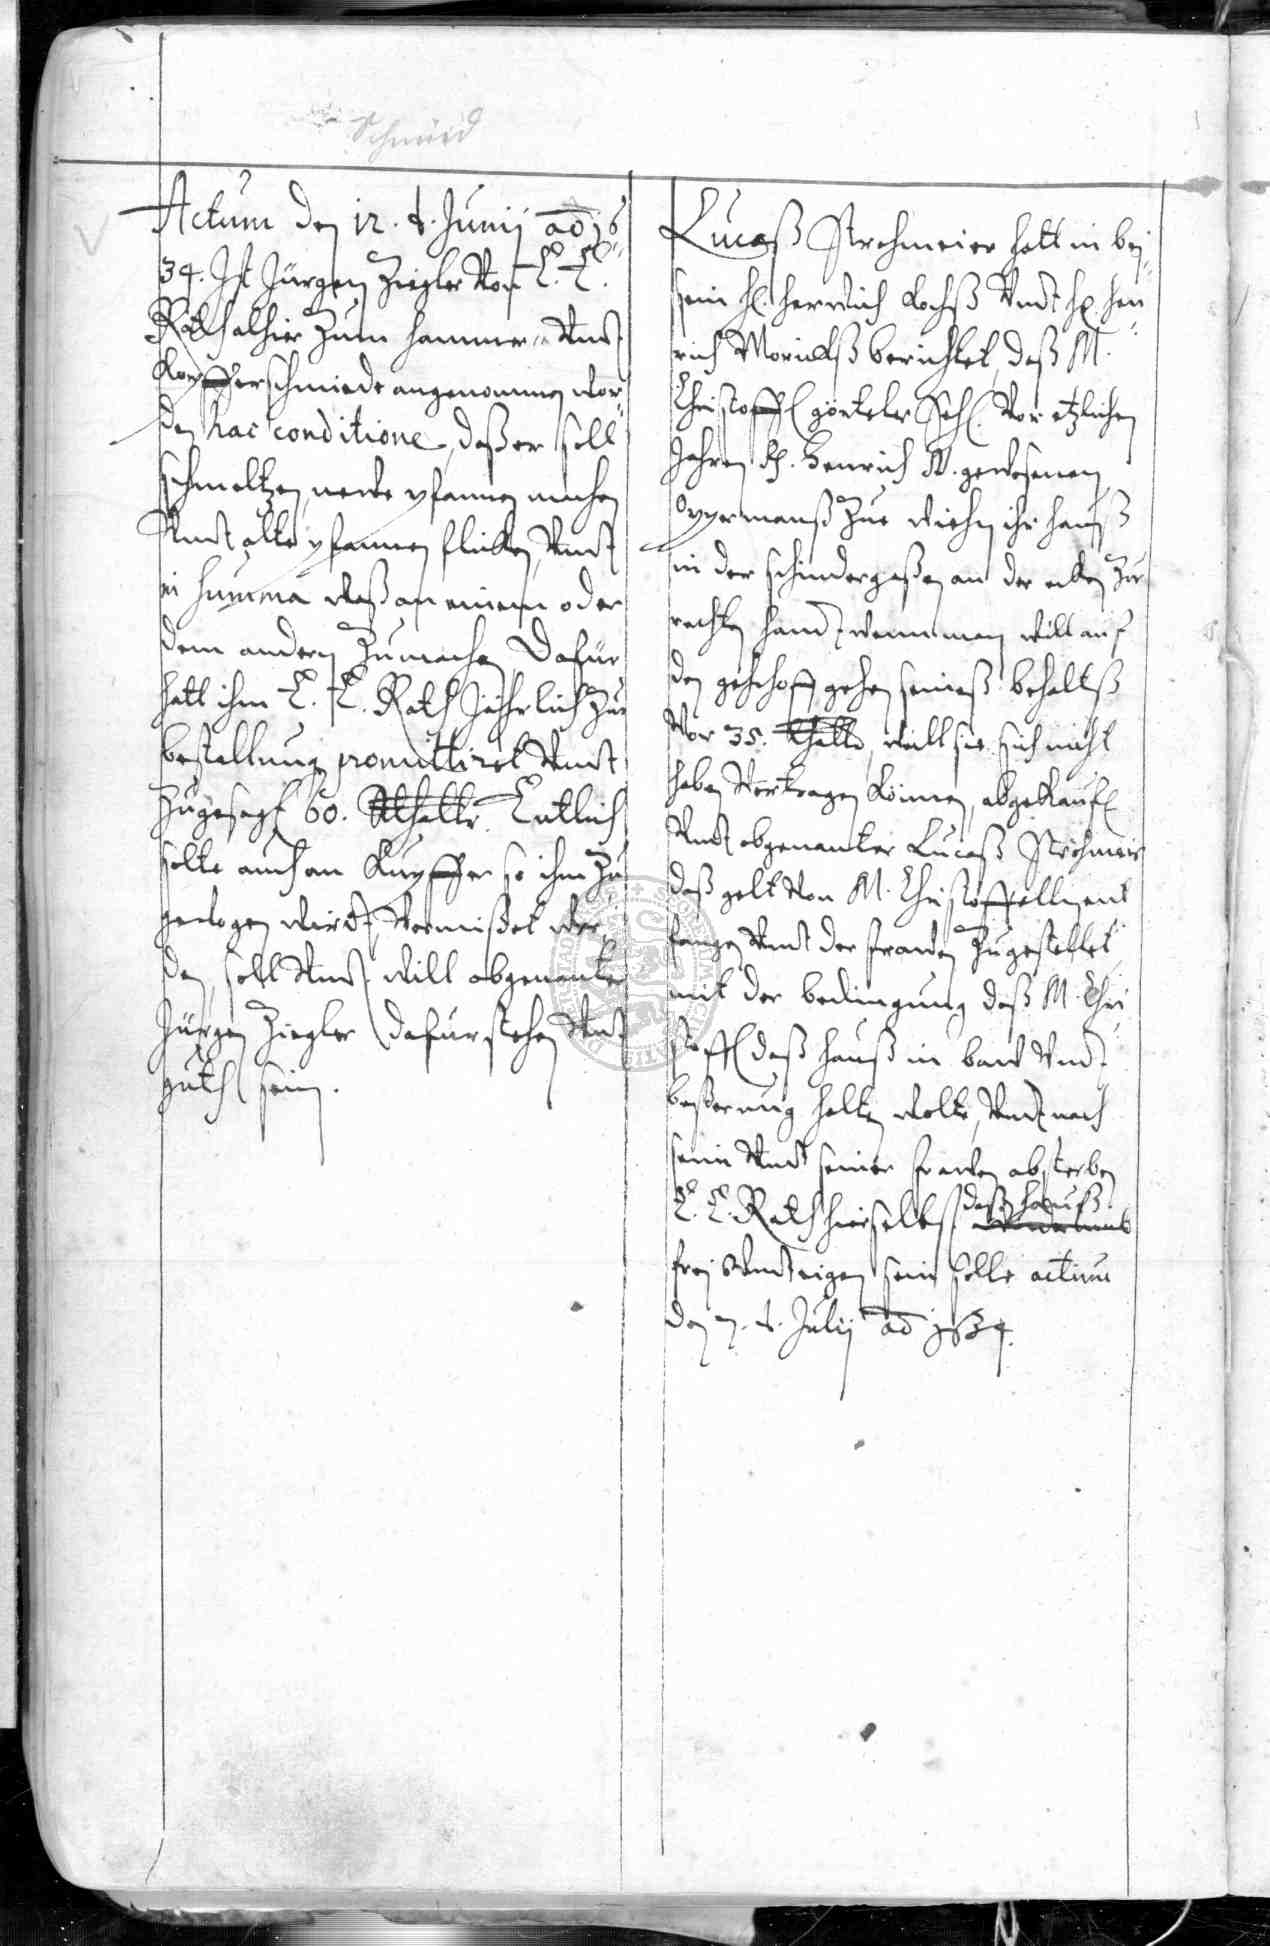 Schmied
Actum den 12. t. Junij ao 16
34. Ist Jürgen Ziegler von E. E.
Rath alhier zum hammer vnd
Kopfferschmiede angenommen wor
den hac conditione, daß er soll
schmeltzen, newe pfannen machen
Vndt alte pfannen flicken, Vndt
in summa waß an einem oder
dem andern zumachen, Dafür
hatt ihm E. E. Rath Jährlich zur
bestallung promittiret Vndt
zugesagt 60. Rthallr. Entlich
solte auch an Kupffer so ihm zu
gewogen wirdt, vermißet wer
den, soll Vndt will obgenanter
Jürgen Ziegler dafur stehen Vndt
guth sein.
Lucaß Strohmeier hatt in bei
sein H. Henrich Kochß Vndt H. Hen
rich berichtet, daß M.
Christoffel görteler Sehl. Vor etzlichen
Jahren H. Henrich gewesenen
Oppermanß zue ihr hauß
in der schindergaßen an der ecken zur
rechten handt wenn man will auf
den gehen behaltß
Vor 35. thaller, weill sie sich nicht
haben Vertragen können, abgekaufft
Vndt obgenanter Lucaß Strohmeir
daß gelt von M. Christoffelln ent
fangen Vndt der frawen zugestellet
mit der bedingung daß M. Chri
stoffel daß hauß in baw Vndt
beßerung halten wolte, Vndt nach
sein Vndt seiner frawen absterben
E. E. Rath hirselbst daß hauß
frej Vndt eigen sein solle actum
den 7. t. Julij ao 1634.